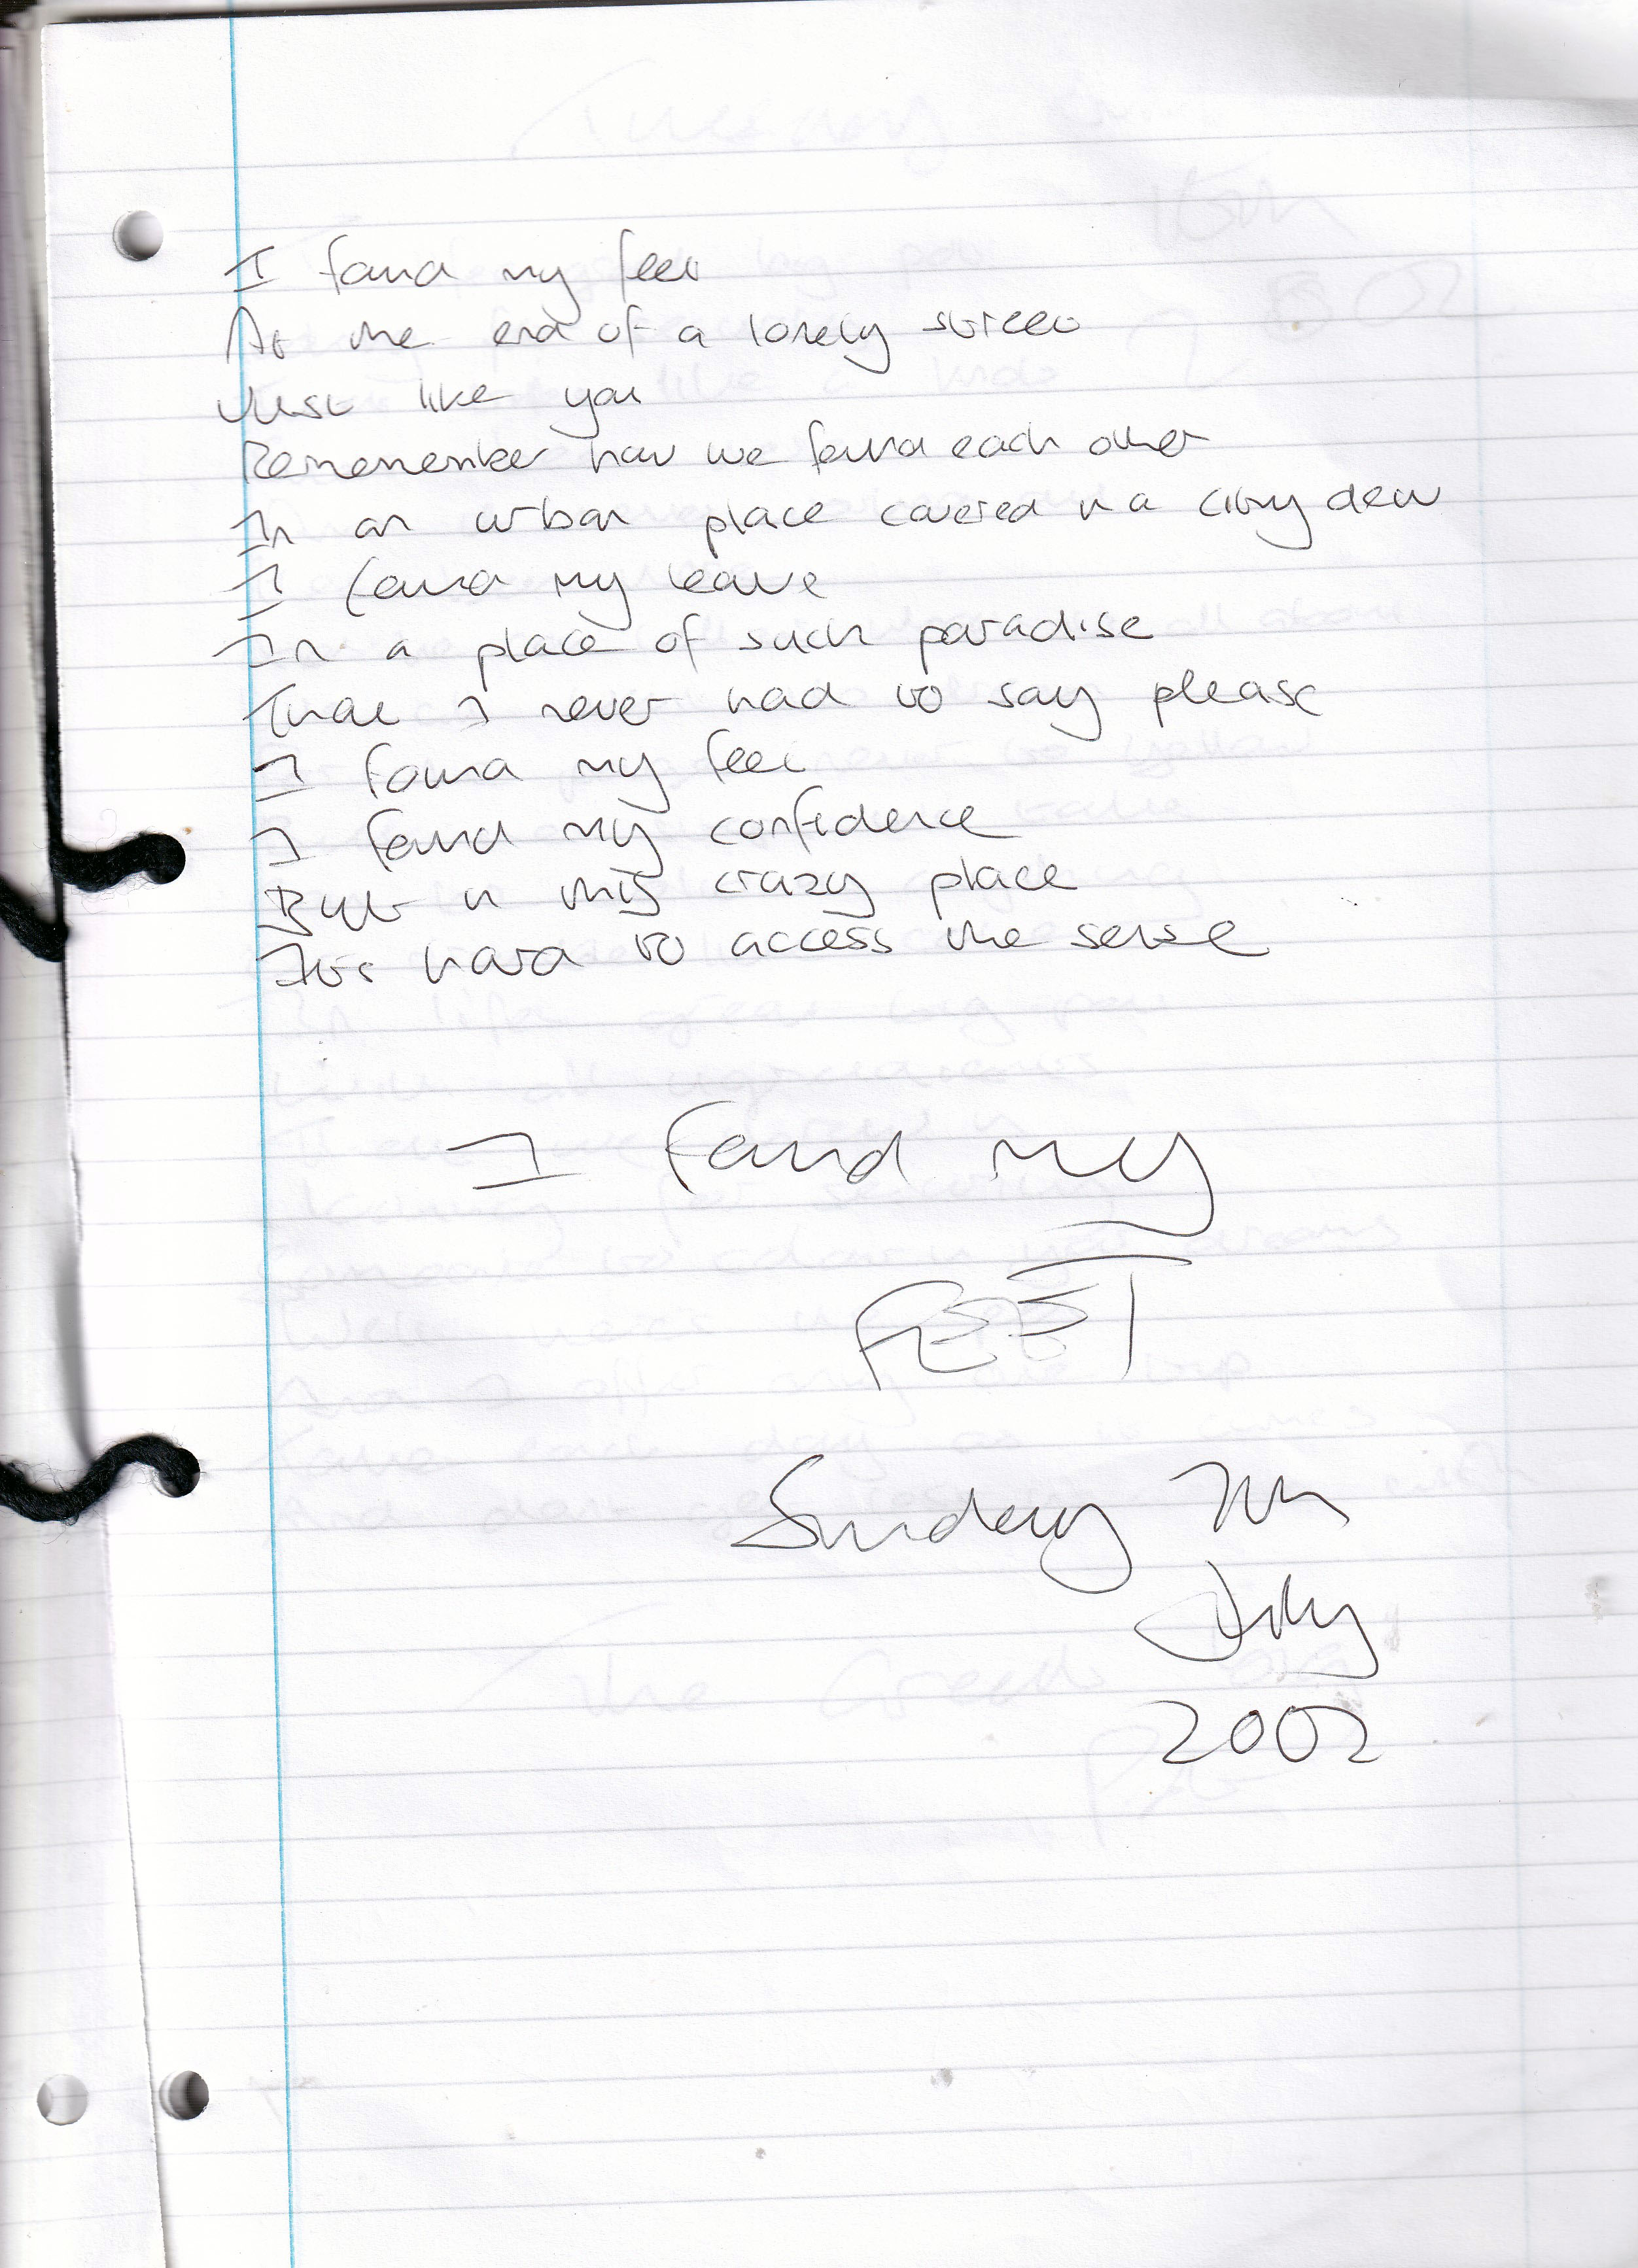 I found my feet
At the end of a lonely street
Just like you
Rememember how we found each other
In an urban place covered in a city dew
I found my leave
In a place of such paradise
That I never had to say please
I found my feet
I found my confidence
But in this crazy place
Its hard to access the sense
I found my
FEET
Sunday 7th
July
2002